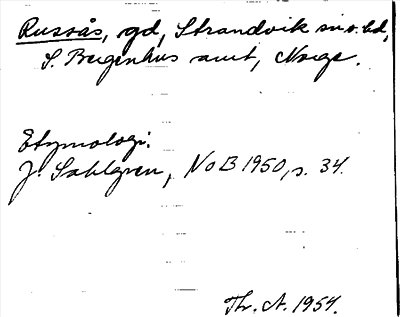 Russås, gd, Strandvik sn o. hd,
S. Bergenhus amt, Norge.
Etymologi:
J. Sahlgren, NoB 1950, s. 34.
Th. A. 1954.